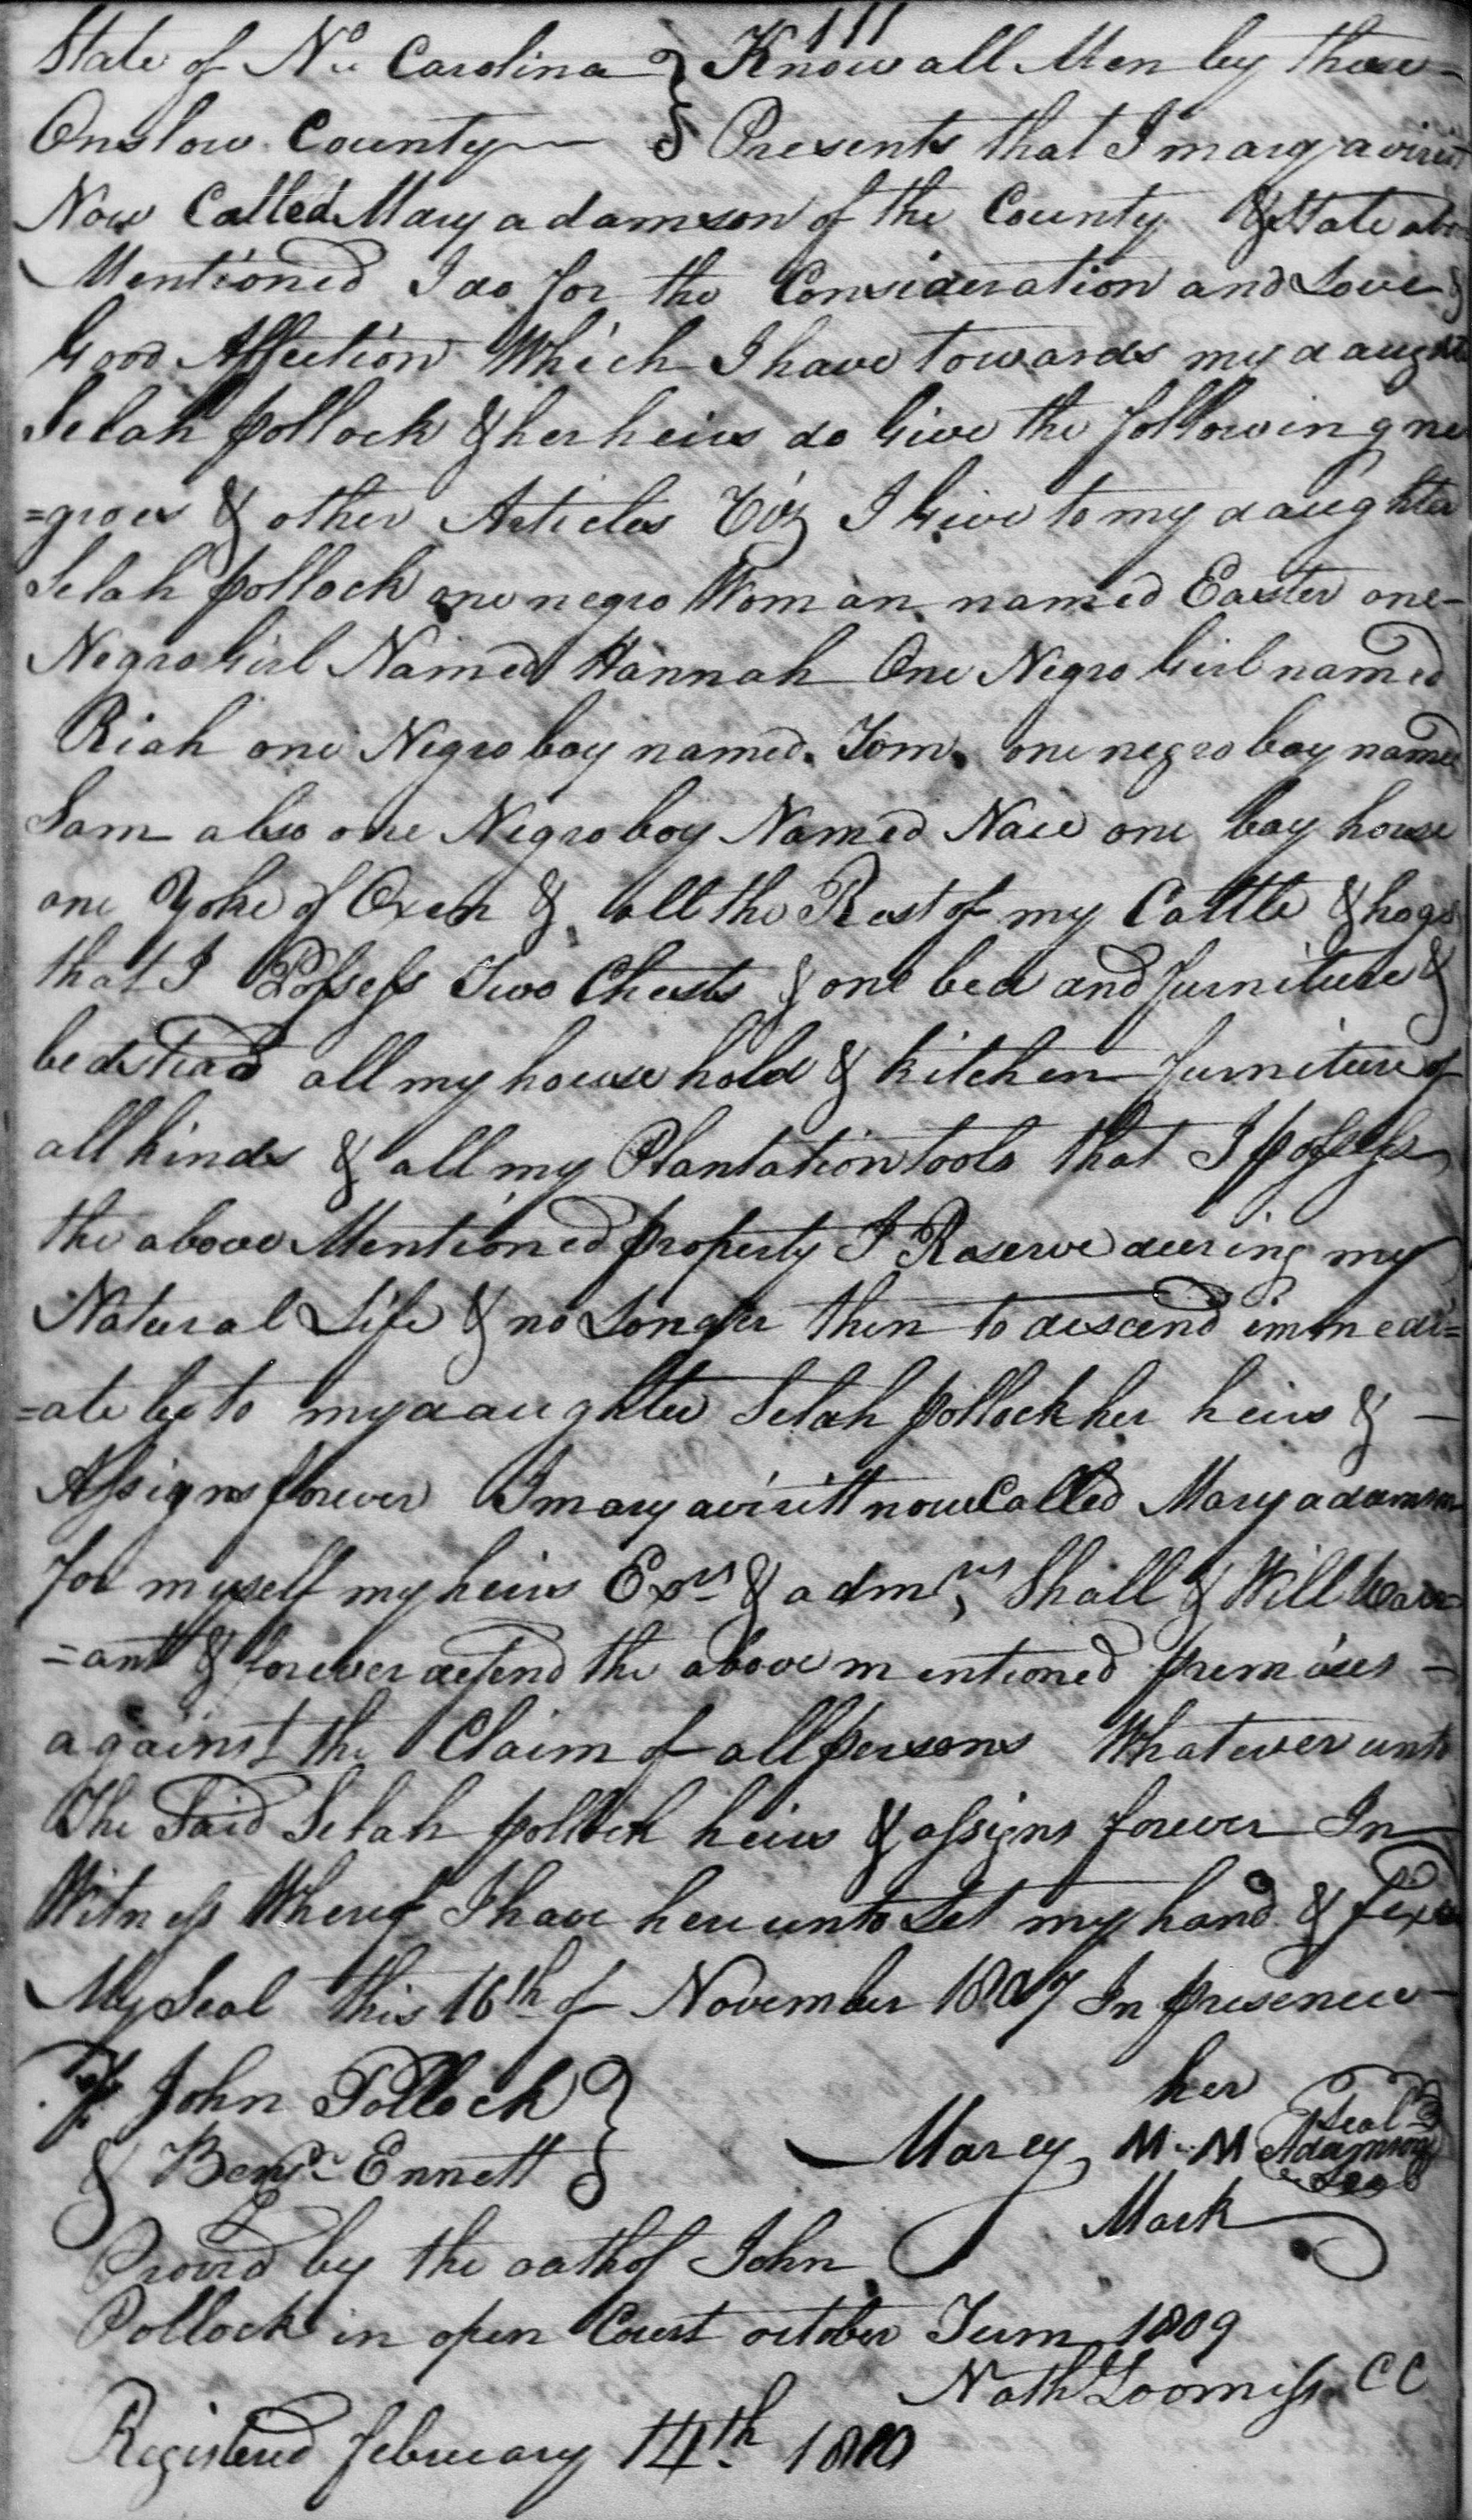 111
State of No Carolina } Know all Men by these
Onslow County } Presents that I mary avirett
Now Called Mary adamson of the County & State abo
Mentioned I do for the Consideration and Love &
Good Affection Which I have towards my daught
Selah pollock & her heirs do Give the following ne
=groes & other Articles Viz I Give to my daughter
Selah pollock one negro Woman named Easter one
Negro Girl Named Hannah One Negro Girl named
Riah one Negro boy named Tom one negro boy named
Sam also one Negro boy Named Nace one bay horse
one Yoke of Oxen & all the Rest of my Cattle & hogs
that I Possess Two Chests & one bed and furniture &
bedstead all my house hold & kitchen furniture of
all kinds & all my Plantation tools that I possess
the above Mentioned property I Reserve during my
Natural Life & no Longer then to descend immedi=
=ately to my daughter Selah pollock her heirs &
Assigns forever I mary avirett now Called Mary adamson
for myself my heirs Exrs & admrs Shall & Will Warr=
=ant & forever defend the above mentioned premises
against the Claim of all persons Whatever unto
The Said Selah pollock heirs & assigns forever In
Witness Whereof I have here unto Set my hand & fixed
My Seal this 16th of November 1807 In presence
of John Pollock }
& Benj Ennett }
her
Marey M M Adamson
Seal
Seal
Mark
Provd by the oath of John
Pollock in open Court october Term 1809
Nath Loomiss CC
Registered february 14th 1810